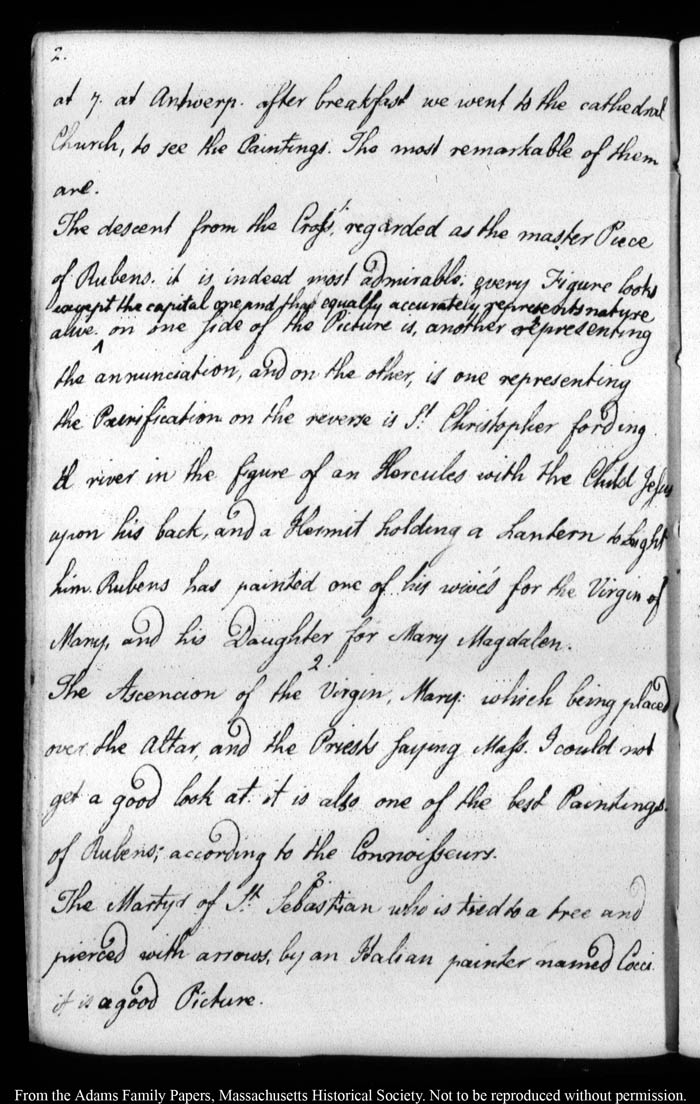 2.
at 7. at Antwerp. after breakfast we went to the cathedral
Church, to see the Paintings. The most remarkable of them
are.
1.
The descent from the Cross, regarded as the master Piece
of Rubens. it is indeed most admirable. every Figure looks
except the capital one and that equally accurately represents nature
alive. ^ on one side of the Picture is, another representing
the annunciation, and on the other, is one representing
the Purification on the reverse is St. Christopher fording
river in the figure of an Hercules with the Child Jesus
upon his back, and a Hermit holding a Lantern to Light
him. Rubens has painted one of his wive's for the Virgin of
Mary, and his Daughter for Mary Magdalen.
2
The Ascencion of the Virgin, Mary: which being placed
over the Altar, and the Priests saying Mass. I could not
get a good look at. it is also one of the best Paintings.
of Rubens; according to the Connoisseurs.
3
The Martyr of St. Sebastian who is tied to a tree and
pierced with arrows, by an Italian painter named Cocci.
it is a good Picture.
From the Adams Family Papers, Massachusetts Historical Society. Not to be reproduced without permission.